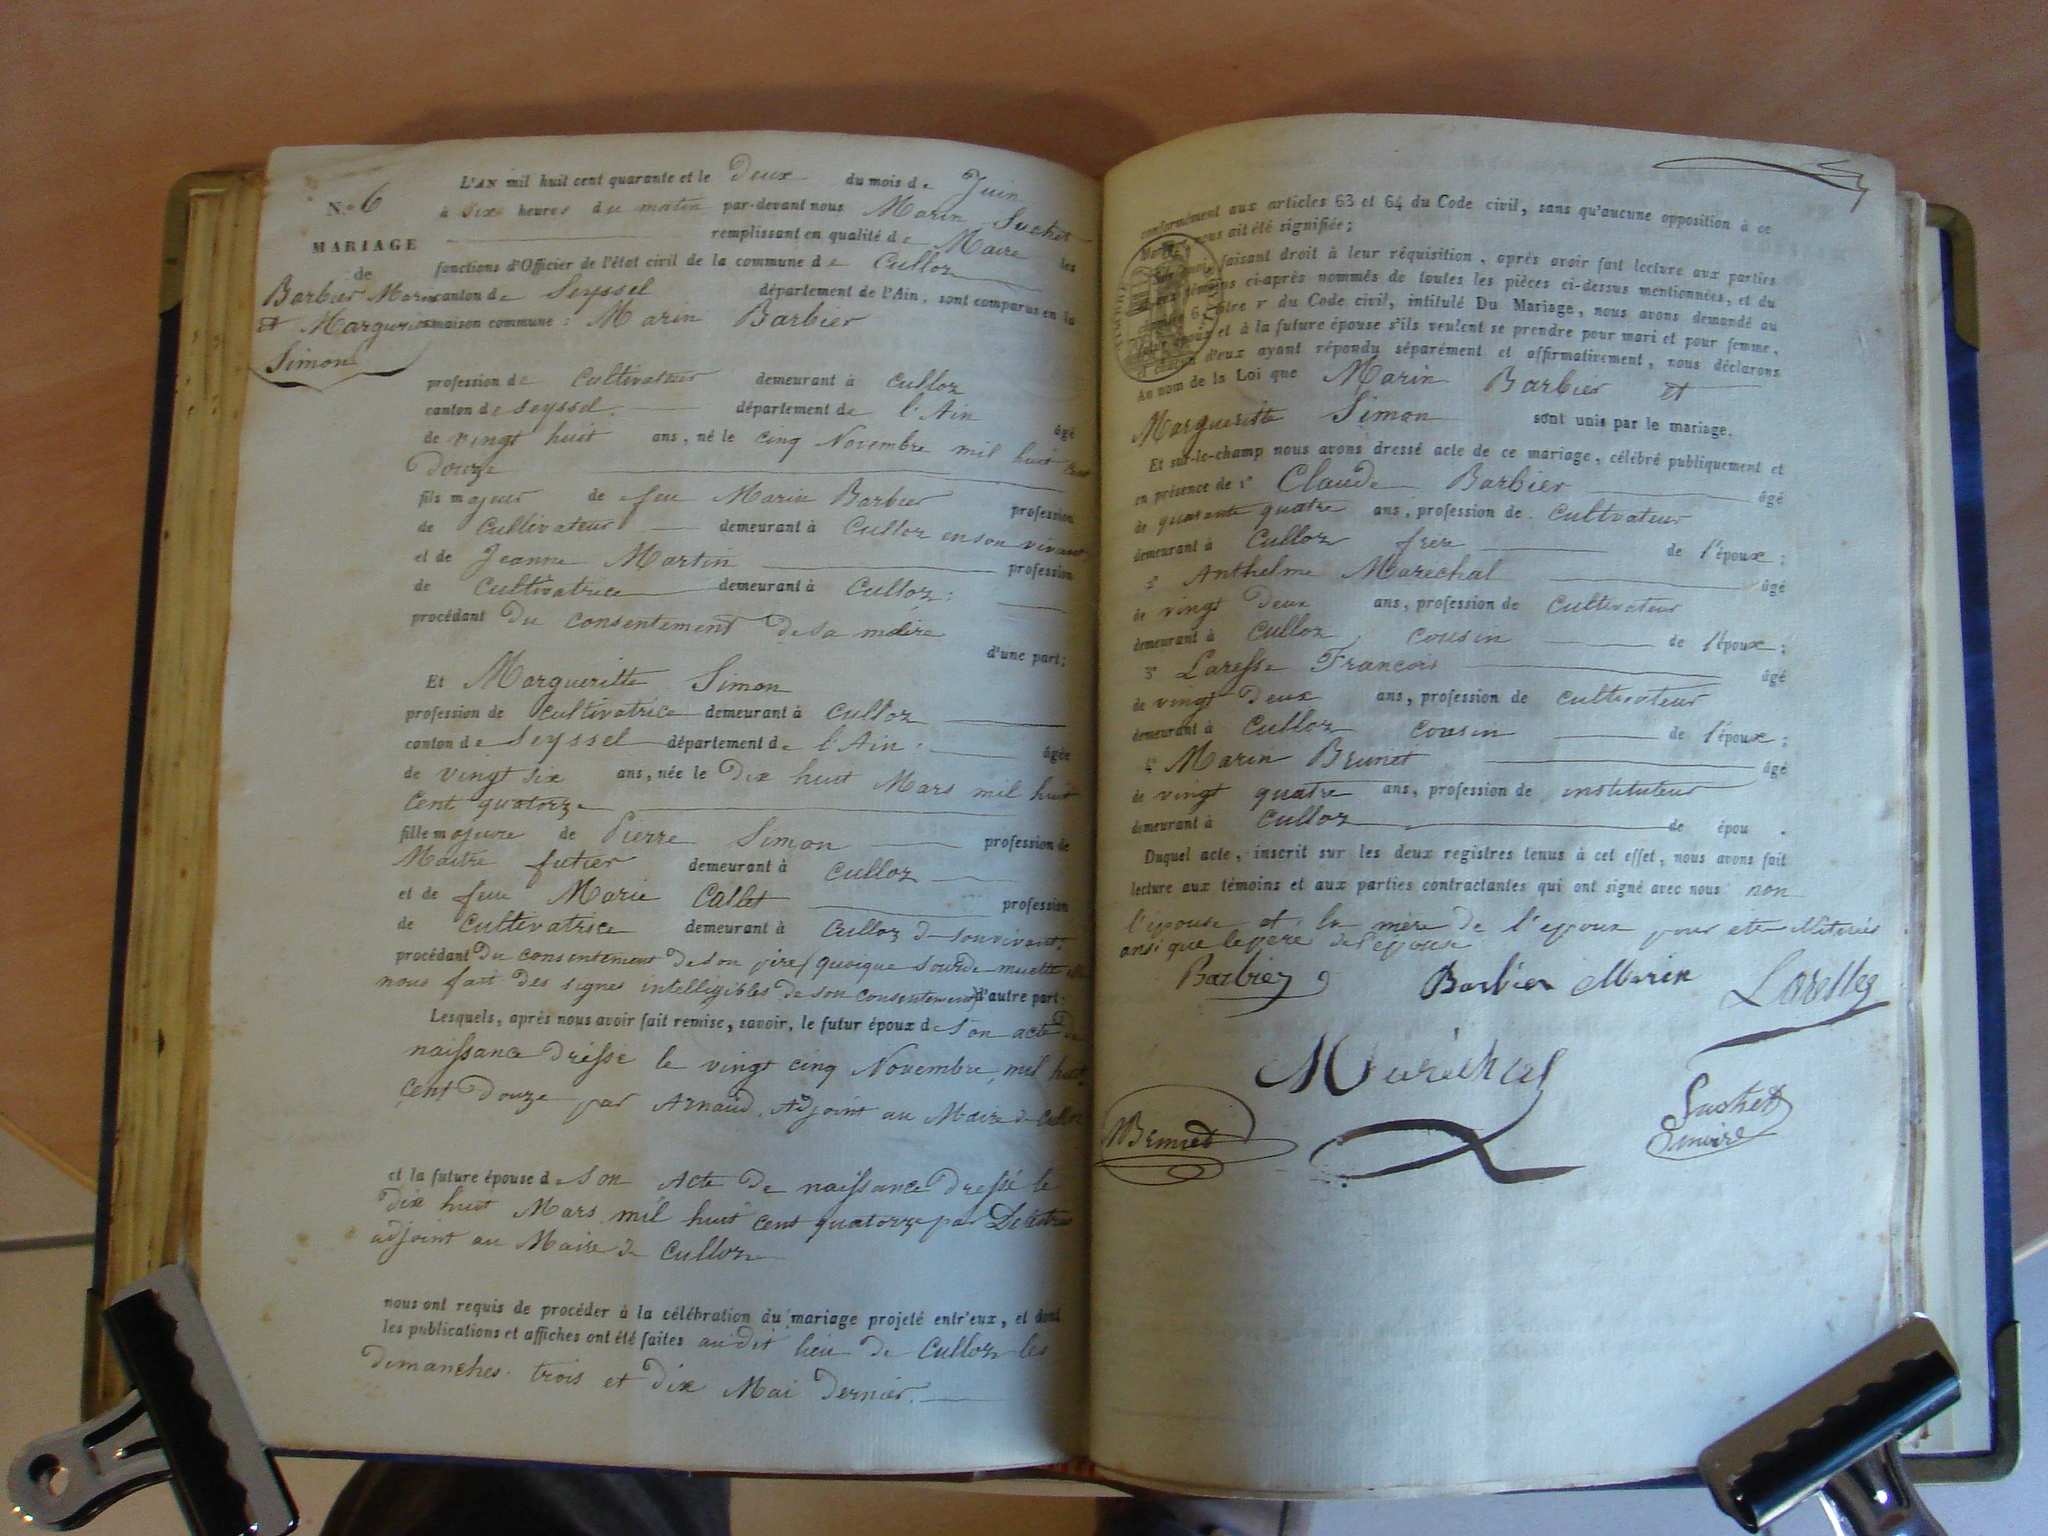 N.° 6
MARIAGE
de
Barbier Marin
et Marguerite
Simon
L'AN mil huit cent quarante et le Deux du mois de Juin
à six heures du matin par-devant nous Marin Suchet
remplissant en qualité de Maire les
fonctions d'Officier de l'état civil de la commune de Culloz
canton de Seyssel département de l'Ain, sont comparus en la
maison commune : Marin Barbier
profession de Cultivateur demeurant à Culloz
canton de Seyssel. département de l'Ain âgé
de vingt huit ans, né le cinq Novembre mil huit cent
Douze
fils majeur de feu Marin Barbier profession
de Cultivateur demeurant à Culloz en son vivant
et de Jeanne Martin profession
de Cultivatrice demeurant à Culloz ;
procédant Du consentement De sa mère
d'une part ;
Et Margueritte Simon
profession de cultivatrice demeurant à Culloz
canton de Seyssel département de l'Ain, âgée
de vingt six ans, née le Dix huit Mars mil huit
Cent quatorze
fille majeure de Pierre Simon profession de
Maitre futier demeurant à Culloz
et de feue Marie Callet profession
de Cultivatrice demeurant à Culloz De son vivant,
procédant Du consentement De son père (quoique sourde muette
nous fait Des signes intelligibles De son consentement) d'autre part.
Lesquels, après nous avoir fait remise, savoir, le futur époux de Son acte De
naissance Dressé le vingt cinq Novembre, mil huit
Cent Douze par Arnaud, Adjoint au Maire De Culloz
et la future épouse de Son Acte De naissance Dressé le
Dix huit Mars mil huit Cent quatorze par
adjoint au Maire De Culloz
nous ont requis de procéder à la célébration du mariage projeté entr'eux, et dont
les publications et affiches ont été faites audit lieu De Culloz les
Dimanches trois et Dix Mai Dernier.
conformément aux articles 63 et 64 du Code civil, sans qu'aucune opposition à ce
nous ait été signifiée ;
faisant droit à leur réquisition, après avoir fait lecture aux parties
témoins ci-après nommés de toutes les pièces ci-dessus mentionnées, et du
6, titre v du Code civil, intitulé Du Mariage, nous avons demandé au
époux et à la future épouse s'ils veulent se prendre pour mari et pour femme,
et chacun d'eux ayant répondu séparément et affirmativement, nous déclarons
Au nom de la Loi que Marin Barbier et
Margueritte Simon sont unis par le mariage.
Et sur-le-champ nous avons dressé acte de ce mariage, célébré publiquement et
en présence de 1° Claude Barbier âgé
de quarante quatre ans, profession de Cultivateur
demeurant à Culloz frère de l'époux ;
2° Anthelme Marechal âgé
de vingt Deux ans, profession de Cultivateur
demeurant à Culloz, cousin de l'époux ;
3° Laresse Francois âgé
de vingt Deux ans, profession de cultivateur
demeurant à Culloz cousin de l'époux ;
4° Marin Brunet âgé
de vingt quatre ans, profession de instituteur
demeurant à Culloz de épou .
Duquel acte, inscrit sur les deux registres tenus à cet effet, nous avons fait
lecture aux témoins et aux parties contractantes qui ont signé avec nous non
l'épouse et la mère De l'époux pour etre illiterés
ansi que le père De l'épouse
Barbier Barbier Marin Laresse
Maréchal
MBrunet
Suchet
maire